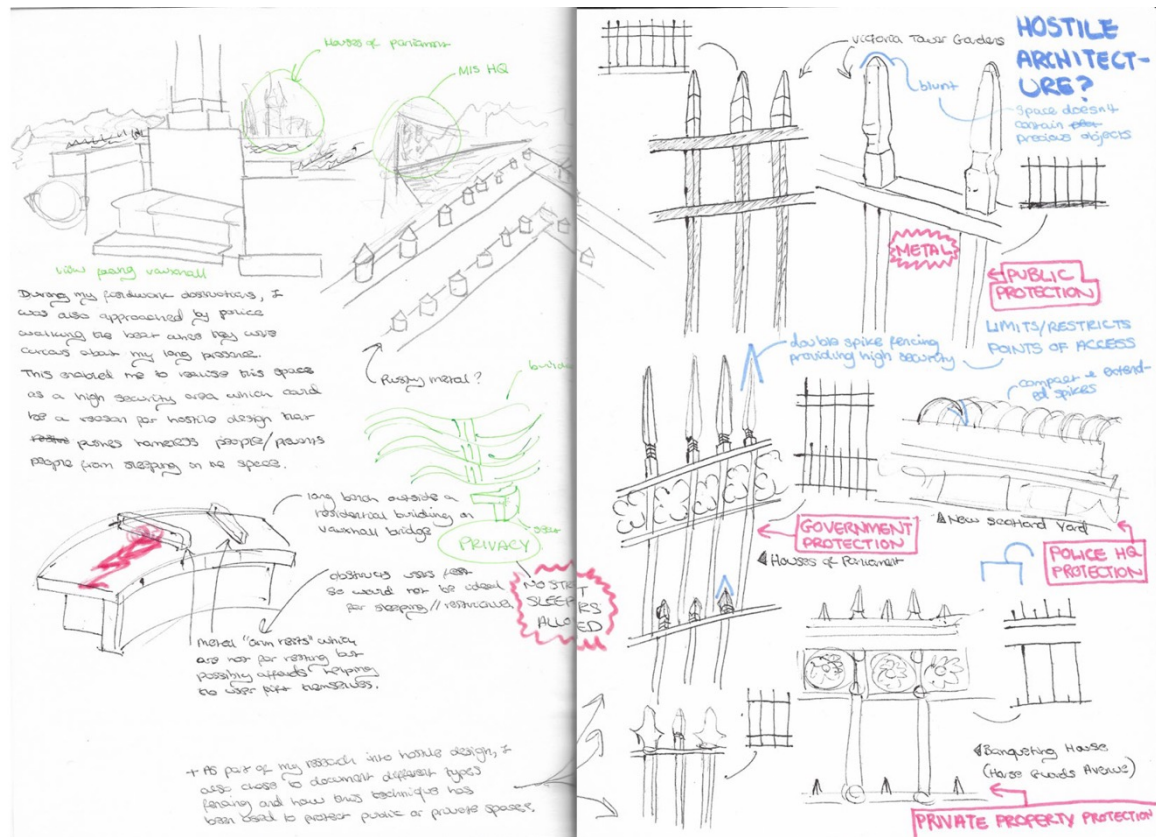 Houses of parliament
MI5 HQ
view facing vauxhall
During my fieldwork observations, I
was also approached by police
walking the beat when they were
curious about my long presence.
This enabled me to realise this space
as a high security area which could
be a reason for hostile design that
pushes homeless people/prevents
people from sleeping in the space.
Rusty metal?
seat
PRIVACY
NO STREET
SLEEPERS
ALLOWED
long bench outside a
residential building on
vauxhall bridge
obstructs users feet
so would not be ideal
for sleeping//
metal "arm rests" which
are not for resting but
possibly affords helping
the user themselves.
+ As part of my research into hostile design, I
also chose to document different types
fencing and how this technique has
been used to protect public or private spaces.
HOSTILE
ARCHITECT-
URE?
Victoria Tower Gardens
blunt
Space doesn't
contain
precious objects
METAL
PUBLIC
PROTECTION
LIMITS/RESTRICTS
POINTS OF ACCESS
double spike fencing
providing high security
compact + extend-
ed spikes
New Scotland Yard
GOVERNMENT
PROTECTION
Houses of Parliament
POLICE HQ
PROTECTION
Banqueting House
(Horse Guards Avenue)
PRIVATE PROPERTY PROTECTION